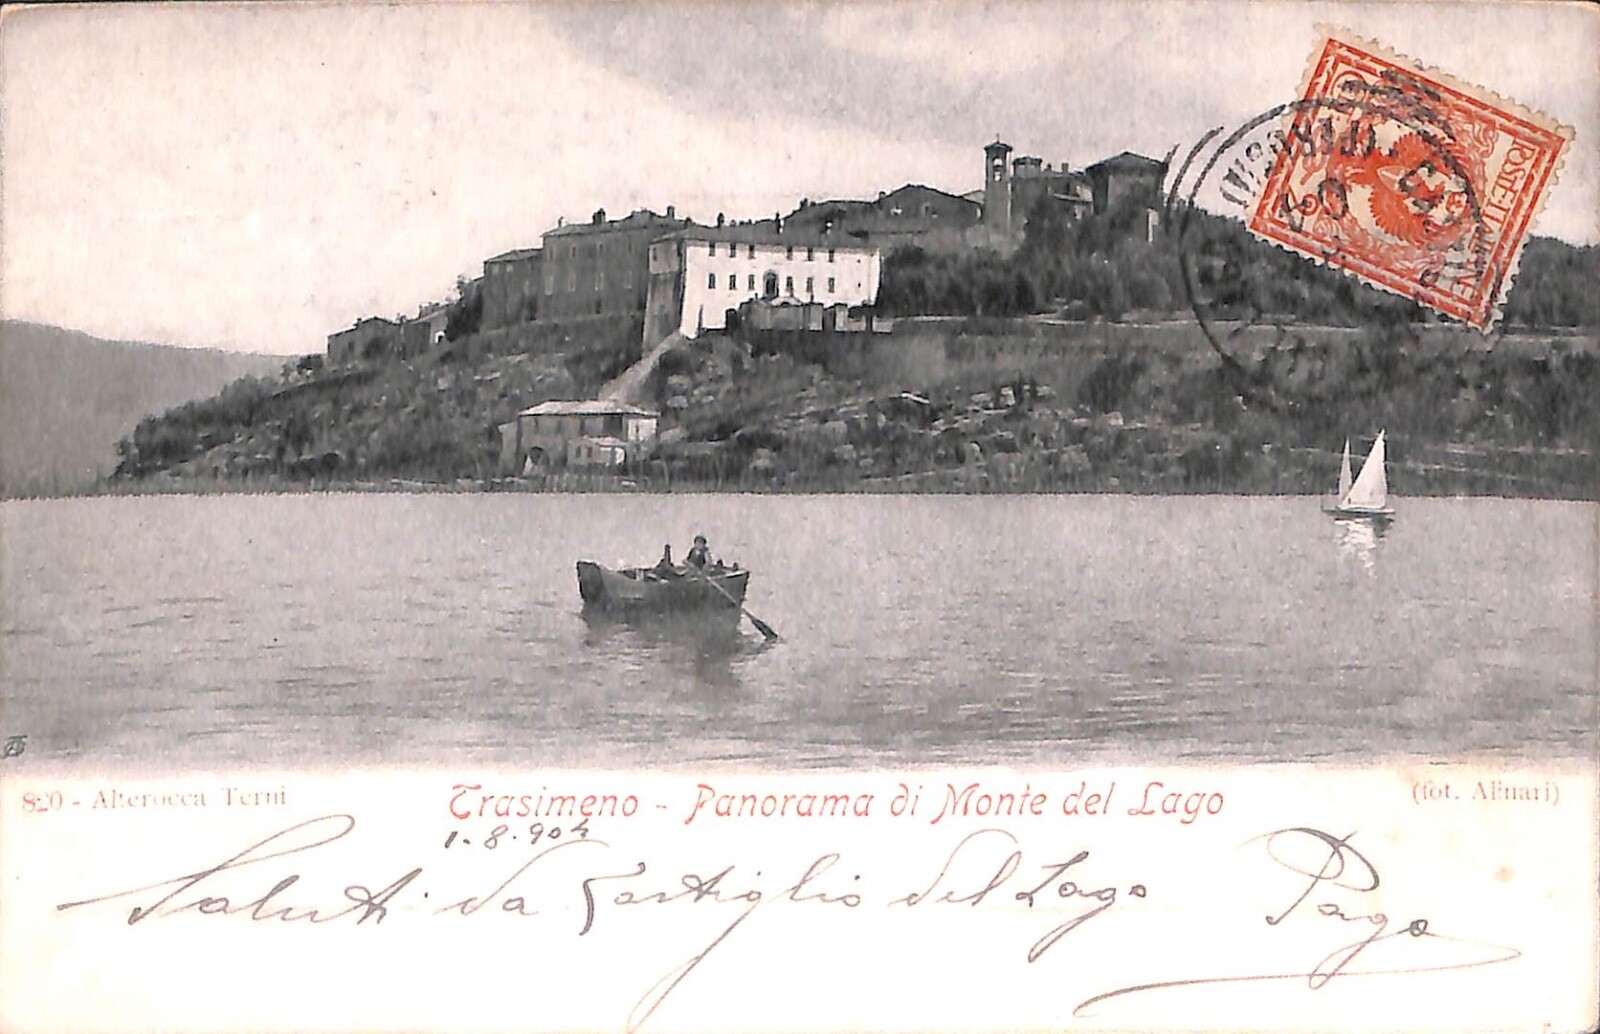 POSTE ITALIANE
820 - Alterocca Terni
Trasimeno - Panorama di Monte del Lago
(fot. Alinari)
1.8.904
Saluti da Castiglio del Lago
Pago